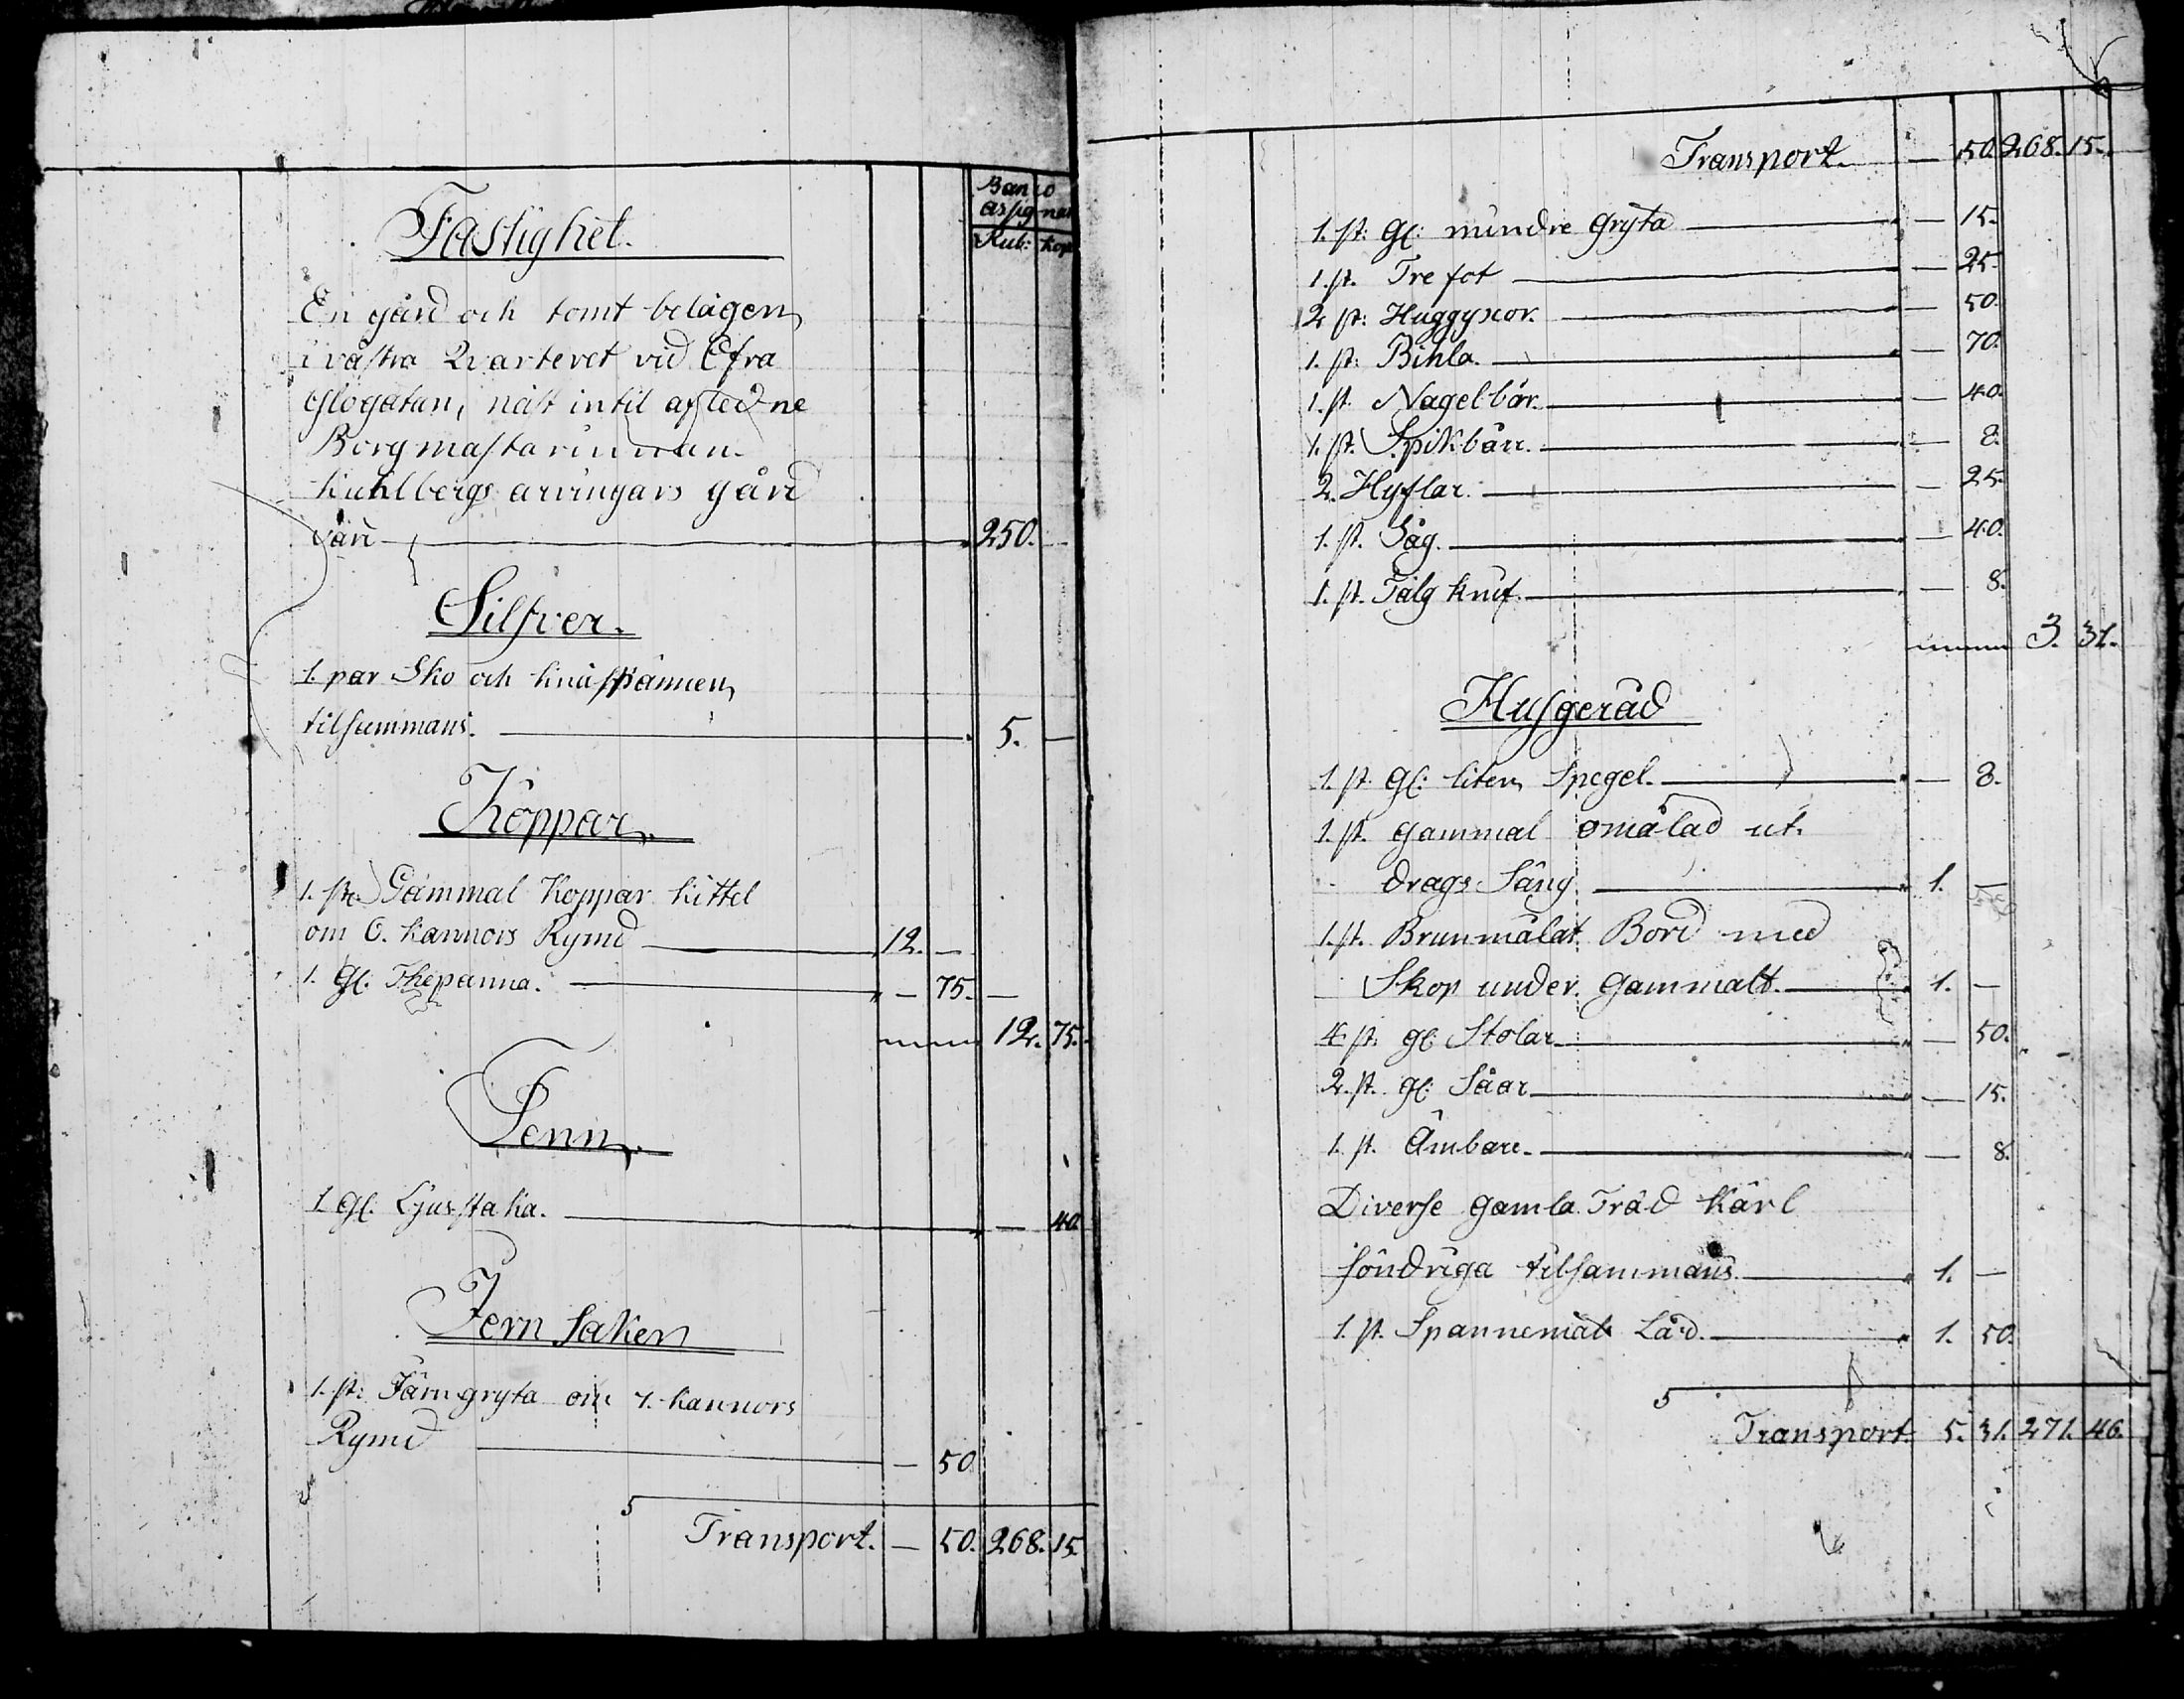 Banco
assignat
Rub: Kop
Fastighet.
En gård och tomt belägen
i västra Qvarteret vid Öfra
Glogatan, näst intil afledne
Borgmästarinnan
Kuhlbergs arvingars gård
värd — 250. —
Silfver.
1. par Sko och knäspännen
tilsammans. — 5. —
Koppar.
1. st. Gammal Koppar kittel
om 6. kannors Rymd — 12. —
1. gl. Thépanna. — 75. —
12. 75.
Tenn.
1 gl. Ljusstaka. — 40
Jern saker
1. st: Järngryta om 7. kannors
Rymd — 50
Transport. — 50. 268. 15.
Transport. — 50. 268. 15.
1. st: gl: mindre gryta — 15.
1. st. Trefot — 25.
2 st: Huggyxor. — 50.
1. st: Bihla. — 70.
1. st. Nagelbår. — 40.
1. st. Spikbårr. — 8.
2. Hyflar. — 25.
1. st. Såg. — 40.
1. st. Tälg knif. — 8.
3. 31.
Husgeråd
1. st. gl: liten Spegel. — 8.
1. st. gammal omålad ut-
drags Säng. — 1. —
1. st. Brunmålat Bord med
Skåp under. gammalt. — 1. —
4 st. gl: Stolar — 50.
2. st. gl: Såar — 15.
1. st. Ämbare. — 8.
Diverse gamla Träd Kärl
söndriga tilsammans. — 1. —
1. st. Spannemåls Lård. — 1. 50.
Transport. 5. 31. 271. 46.